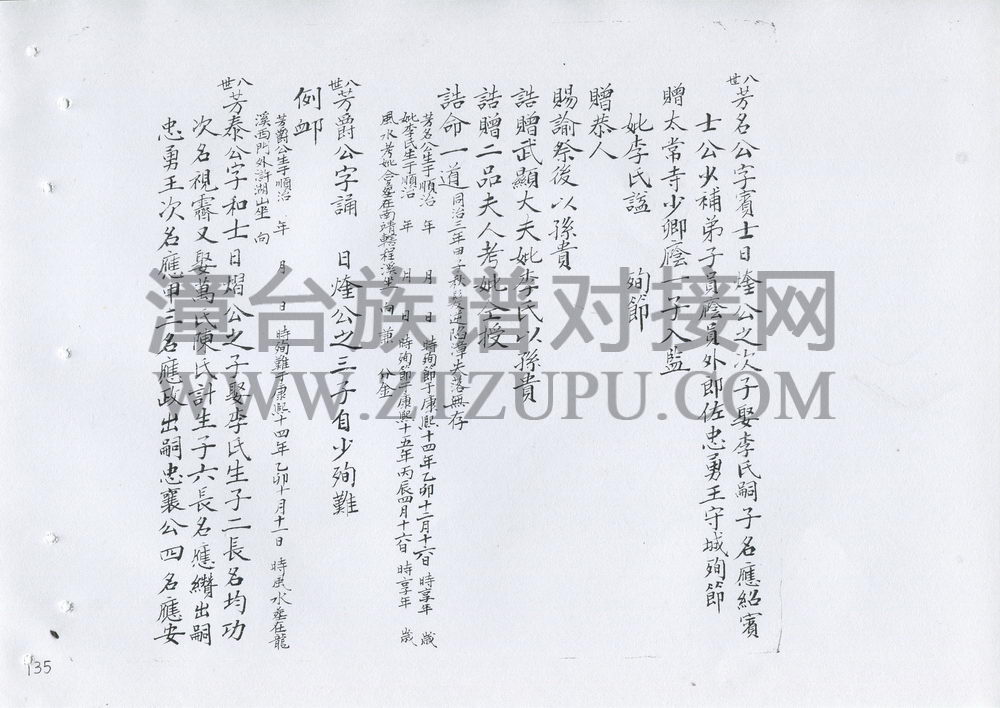 八世芳名公字賓士日煃公之次子娶李氏嗣子名應紹賓
士公少補弟子員廕員外郎佐忠勇王守城殉節
贈太常寺少卿廕一子入監
妣李氏諡 殉節
贈恭人
賜諭祭後以孫貴
誥贈武顯大夫妣李氏以孫貴
誥贈二品夫人考妣仝授
誥命一道同治三年甲子秋髮逆陷漳失落無存
芳名公生于順治 年 月 日 時殉節于康熙十四年乙卯十二月十六日 時享年 歲
妣李氏生于順治 年 月 日 時殉節于康熙十五年丙辰四月十六日 時享年 歲
風水考妣合葬在南靖轄程溪坐 向 兼 分金
八世芳爵公字誦 日煃公之三子自少殉難
例卹
芳爵公生于順治 年 月 日 時殉難于康熙十四年乙卯十月十一日 時風水葬在龍
溪西門外許湖山坐 向
八世芳泰公字和士日熠公之子娶李氏生子二長名均功
次名視霽又娶萬氏陳氏計生子六長名應纘出嗣
忠勇王次名應甲三名應政出嗣忠襄公四名應安
135
漳台族谱对接网
WWW.ZTZUPU.COM